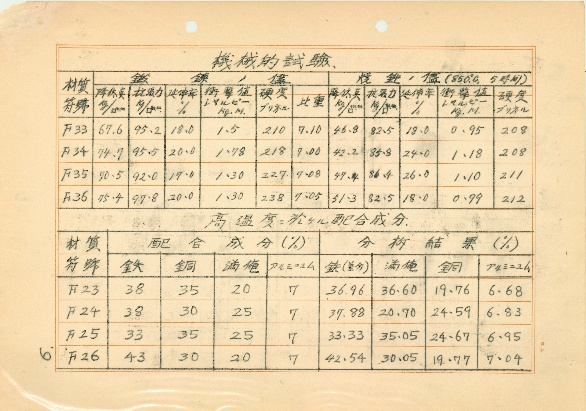 機械的試験
材質符號 鍛錬ノ儘 焼鈍ノ儘 (850°C, 5時間)
降伏点 Kg/□mm 抗張力 Kg/□mm 延伸率 % 衝撃値 シャルピー Kg.M. 硬度 ブリネル 比重 降伏点 Kg/□mm 抗張力 Kg/□mm 延伸率 % 衝撃値 シャルピー Kg.M. 硬度 ブリネル
F33 67.6 95.2 18.0 1.5 210 7.10 46.8 82.5 18.0 0.95 208
F34 74.7 95.5 20.0 1.78 218 7.00 43.2 85.8 24.0 1.18 208
F35 70.5 92.0 17.0 1.30 227 7.08 47.4 86.4 26.0 1.10 211
F36 75.4 97.8 20.0 1.30 238 7.05 51.3 82.5 18.0 0.79 212
高温度ニ於ケル配合成分
材質符號 配合成分 (%) 分析結果 (%)
鉄 銅 満俺 アルミニユム 鉄(差分) 満俺 銅 アルミニユム
F23 38 35 20 7 36.96 36.60 19.76 6.68
F24 38 30 25 7 37.88 20.70 24.59 6.83
F25 33 35 25 7 33.33 35.05 24.67 6.95
F26 43 30 20 7 42.54 30.05 19.77 7.04
6.